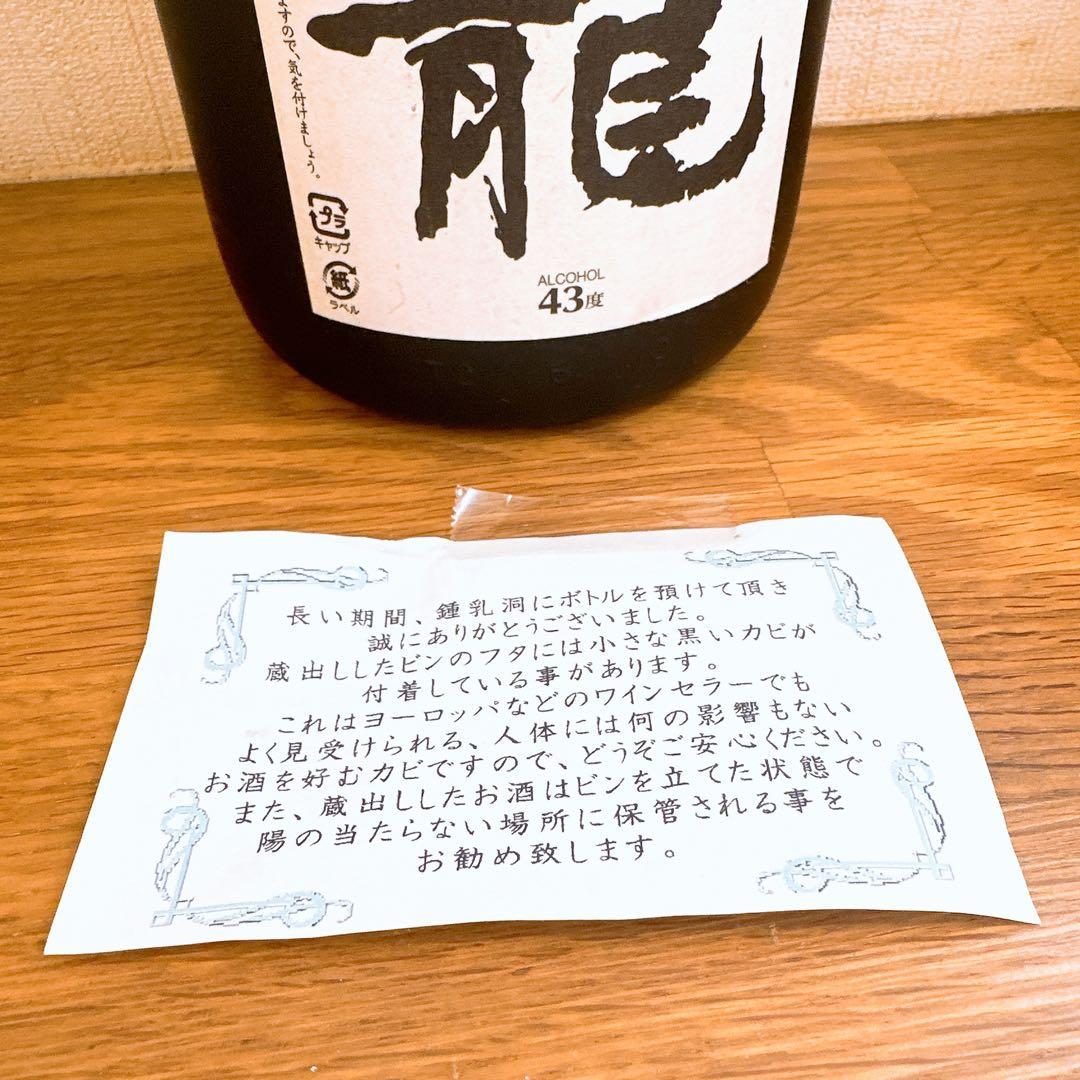 ますので、気を付けましょう。
龍
プラ
キャップ
紙
ラベル
ALCOHOL
43度
長い期間、鍾乳洞にボトルを預けて頂き
誠にありがとうございました。
蔵出ししたビンのフタには小さな黒いカビが
付着している事があります。
これはヨーロッパなどのワインセラーでも
よく見受けられる、人体には何の影響もない
お酒を好むカビですので、どうぞご安心ください。
また、蔵出ししたお酒はビンを立てた状態で
陽の当たらない場所に保管される事を
お勧め致します。